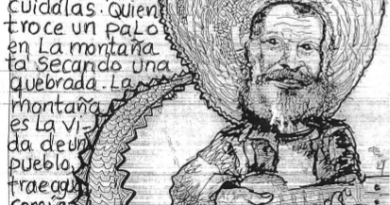 cuidalas. Quien
troce un palo
en La montaña
ta secando una
quebrada. La
montaña
es La vi-
da de un
pueblo,
trae agua